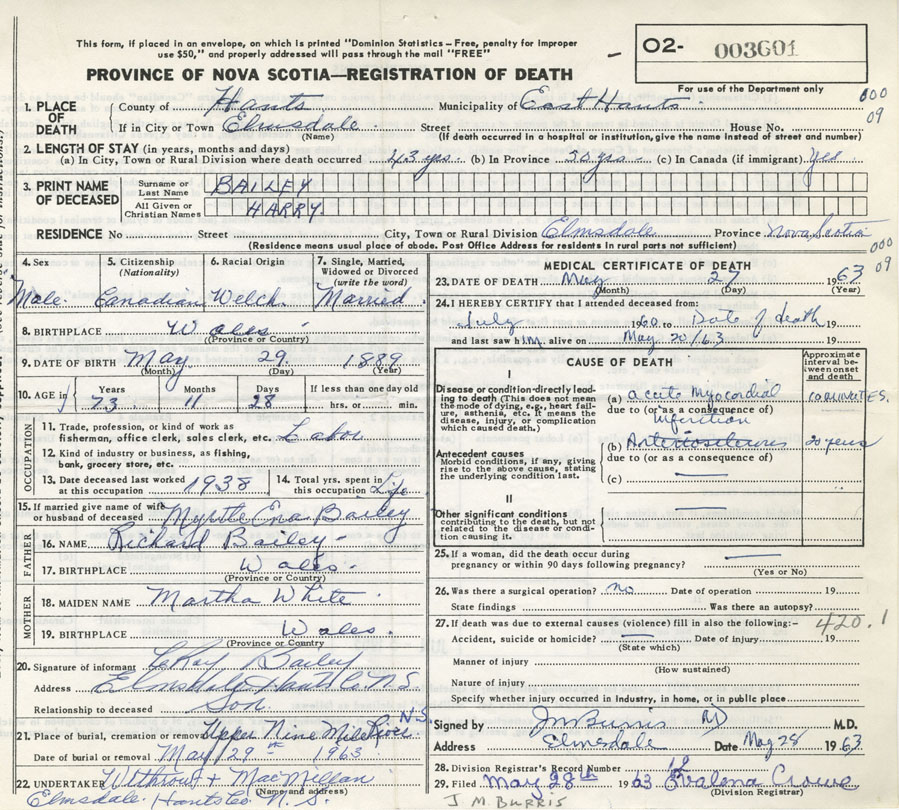 This form, if placed in an envelope, on which is printed "Dominion Statistics – Free, penalty for improper
use $50," and properly addressed will pass through the mail "FREE"
O2- 003601
PROVINCE OF NOVA SCOTIA—REGISTRATION OF DEATH
For use of the Department only
000
09
1. PLACE OF DEATH County of Hants Municipality of East Hants
If in City or Town Elmsdale Street House No.
(Name) (If death occurred in a hospital or institution, give the name instead of street and number)
2. LENGTH OF STAY (in years, months and days)
(a) In City, Town or Rural Division where death occurred 43 yrs. (b) In Province 50 yrs (c) In Canada (if immigrant) Yes
3. PRINT NAME OF DECEASED Surname or Last Name BAILEY
All Given or Christian Names HARRY
RESIDENCE No Street City, Town or Rural Division Elmsdale Province Nova Scotia
(Residence means usual place of abode. Post Office Address for residents in rural parts not sufficient)
000
09
4. Sex Male
5. Citizenship (Nationality) Canadian
6. Racial Origin Welch
7. Single, Married, Widowed or Divorced (write the word) Married
8. BIRTHPLACE Wales
(Province or Country)
9. DATE OF BIRTH May 29 1889
(Month) (Day) (Year)
10. AGE in Years Months Days If less than one day old
73 11 28 hrs. or min.
OCCUPATION
11. Trade, profession, or kind of work as
fisherman, office clerk, sales clerk, etc. Labor
12. Kind of industry or business, as fishing,
bank, grocery store, etc.
13. Date deceased last worked at this occupation 1938
14. Total yrs. spent in this occupation Life
15. If married give name of wife
or husband of deceased Myrtle Ena Bailey
FATHER
16. NAME Richard Bailey
17. BIRTHPLACE Wales
(Province or Country)
MOTHER
18. MAIDEN NAME Martha White
19. BIRTHPLACE Wales
(Province or Country)
20. Signature of informant LeRoy Bailey
Address Elmsdale Hants Co. N.S.
Relationship to deceased Son
21. Place of burial, cremation or removal Upper Nine Mile River N.S.
Date of burial or removal May 29th 1963
22. UNDERTAKER Withrow + MacMillan
(Name and address)
Elmsdale. Hants Co. N. S.
MEDICAL CERTIFICATE OF DEATH
23. DATE OF DEATH May 27 1963
(Month) (Day) (Year)
24. I HEREBY CERTIFY that I attended deceased from:
July 1960 to Date of death 19
and last saw him alive on May 20/63 19
CAUSE OF DEATH
Approximate interval between onset and death
I
Disease or condition directly leading to death (This does not mean the mode of dying, e.g., heart failure, asthenia, etc. It means the disease, injury, or complication which caused death.)
(a) acute Myocardial
due to (or as a consequence of)
Infarction
Antecedent causes
Morbid conditions, if any, giving rise to the above cause, stating the underlying condition last.
(b) Arteriosclerosis 20 years
due to (or as a consequence of)
(c)
II
Other significant conditions
contributing to the death, but not related to the disease or condition causing it.
25. If a woman, did the death occur during
pregnancy or within 90 days following pregnancy?
(Yes or No)
26. Was there a surgical operation? no Date of operation 19
State findings Was there an autopsy?
27. If death was due to external causes (violence) fill in also the following:–
420.1
Accident, suicide or homicide? Date of injury 19
(State which)
Manner of injury
(How sustained)
Nature of injury
Specify whether injury occurred in industry, in home, or in public place
Signed by J M Burris MD M.D.
Address Elmsdale Date May 28 1963
28. Division Registrar's Record Number
29. Filed May 28th 1963 Evalena Crowe
(Division Registrar)
J M. BURRIS